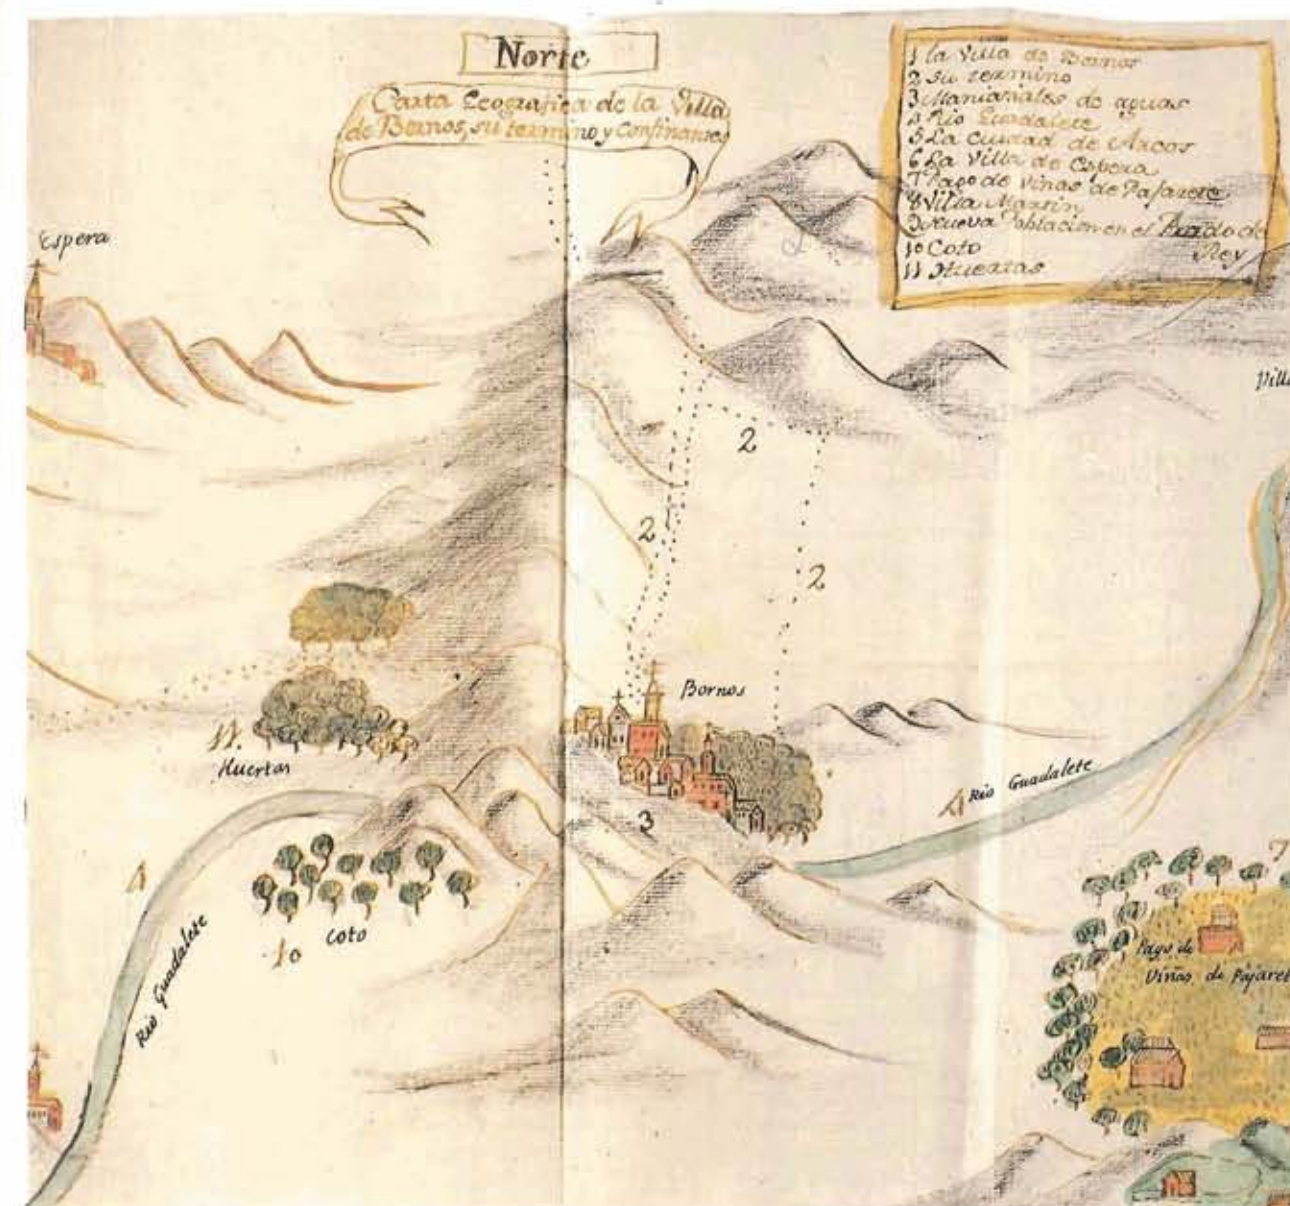 Norte
Carta Geografica de la Villa
de Bornos, su termino y Confinantes
1 la Villa de Bornos
2 su termino
3 Maniantales de aguas
4 Rio Guadalete
5 La Ciudad de Arcos
6 La Villa de Espera
7 Pago de viñas de Pajarete
8 Villa Martin
9 Nueva Poblacion en el Prado de
Rey
10 Coto
11 Huertas
Espera
Villa
2
2
2
Bornos
11.
Huertas
3
4 Rio Guadalete
4
Rio Guadalete
10
Coto
7
Pago de
Viñas de Pajaret